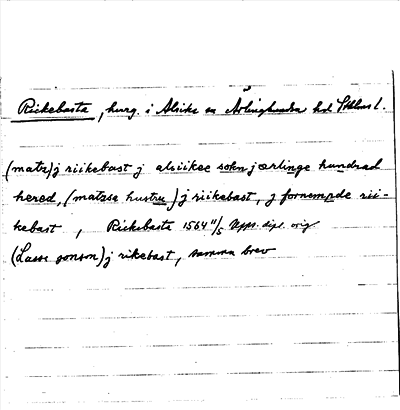 Rickebasta, hmg. i Alsike sn Ärlinghundra hd Sthlms l.
(matz) j riikebast j alsiikee sokn j ærlinge hundrad
hered, (matzse hustru) j riikebast, j fornempde rii-
kebast, Rickebasta 1564 11/5 Upps. dipl. orig
(Lasse jonson) j rikebast, samma brev